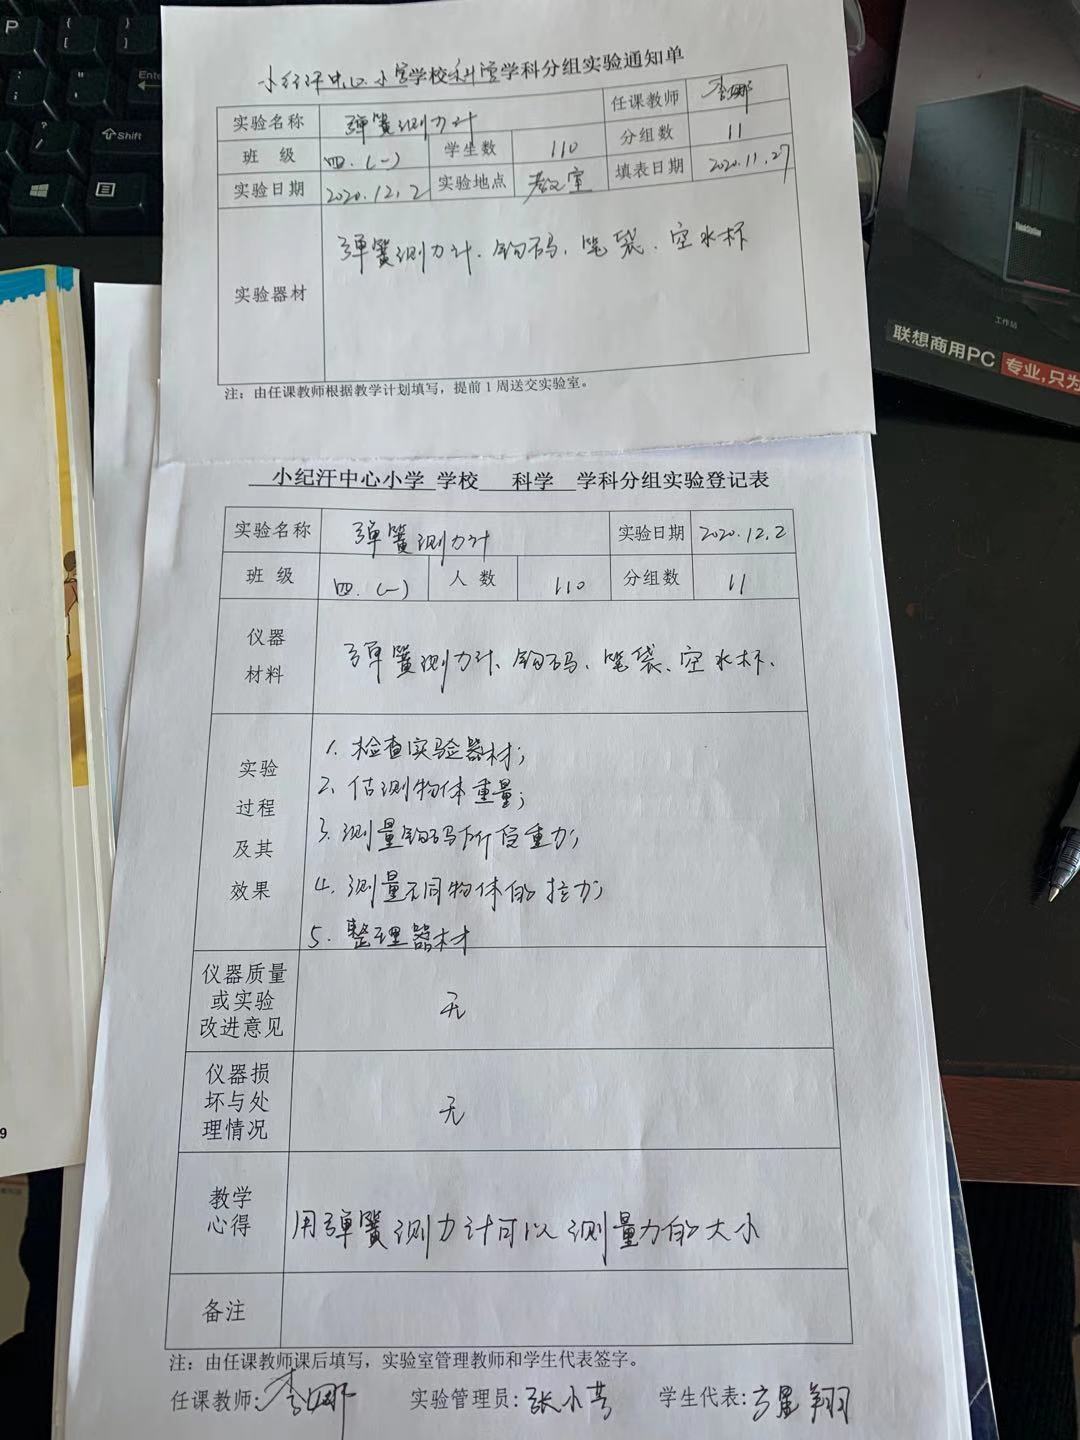 P
Enter
Shift
小纪汗中心小学学校科学学科分组实验通知单
实验名称 弹簧测力计 任课教师 李娜
班 级 四.(一) 学生数 110 分组数 11
实验日期 2020.12.2 实验地点 教室 填表日期 2020.11.27
实验器材 弹簧测力计、钩码、笔袋、空水杯
注：由任课教师根据教学计划填写，提前1周送交实验室。
ThinkStation
工作站
联想商用PC 专业,只为
小纪汗中心小学 学校 科学 学科分组实验登记表
实验名称 弹簧测力计 实验日期 2020.12.2
班 级 四.(一) 人 数 110 分组数 11
仪器
材料
弹簧测力计、钩码、笔袋、空水杯、
实验
过程
及其
效果
1. 检查实验器材；
2. 估测物体重量；
3. 测量钩码所受重力；
4. 测量不同物体的拉力；
5. 整理器材
仪器质量
或实验
改进意见
无
仪器损
坏与处
理情况
无
教学
心得
用弹簧测力计可以测量力的大小
备注
注：由任课教师课后填写，实验室管理教师和学生代表签字。
任课教师:李娜 实验管理员:张小芳 学生代表:方星翔
9